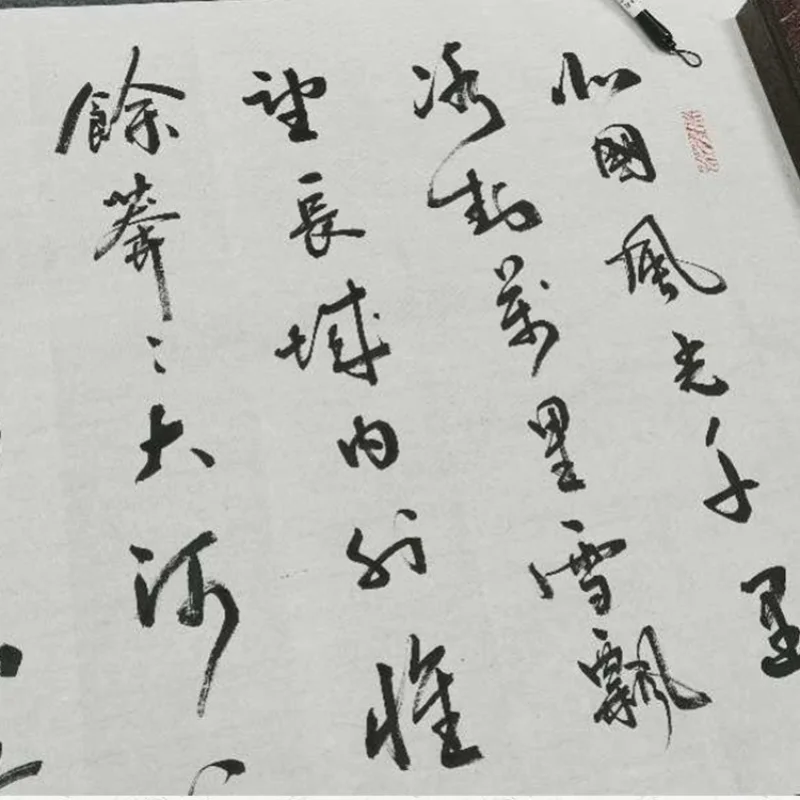 北國風光千里
冰封萬里雪飄
望長城內外惟
餘莽〻大河